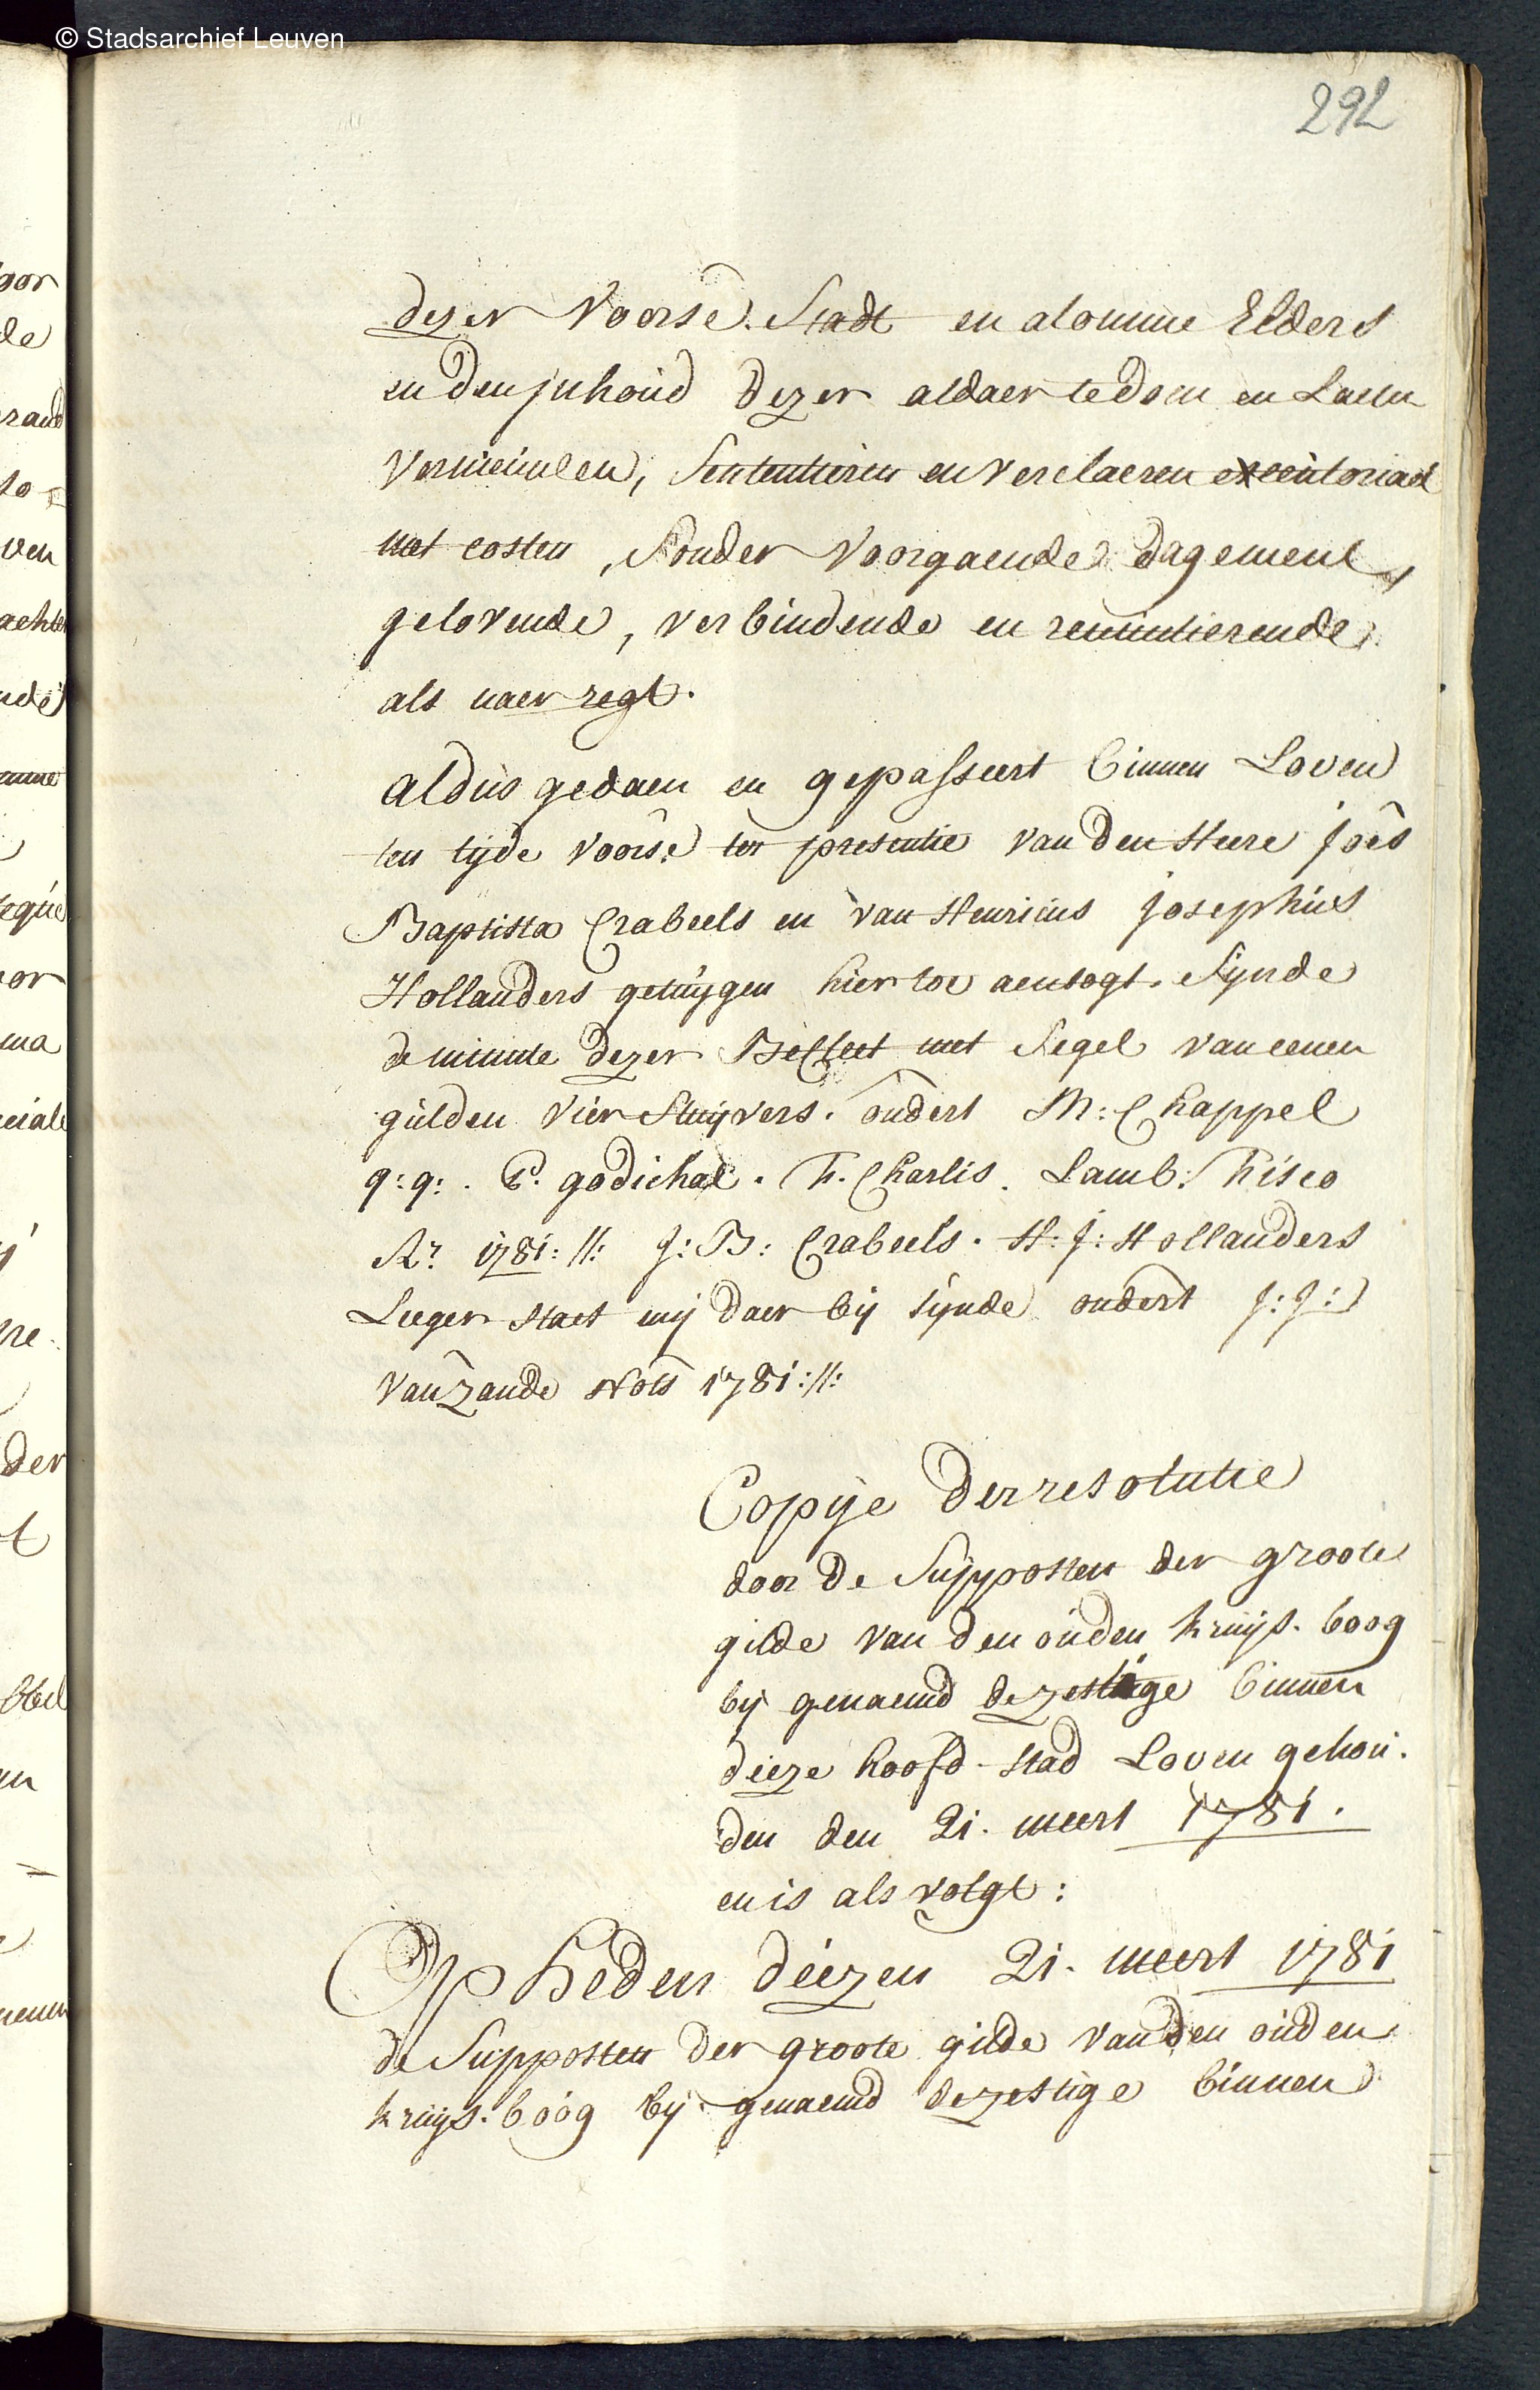 © Stadsarchief Leuven
292
dezer voorsẽ. Stadt en alomme Elders
en den inhoud dezer aldaer te doen en Laeten
vernieuwen, Sententieren en verclaeren executoriael
met costen, Sonder voorgaende dagement,
gelovende, verbindende en renuntierende
als naer regt.
aldus gedaen en gepasseert binnen Loven
ten tyde voorsẽ ter presentie van den Heere joẽs
Baptista Crabeels en van Henricus josephus
Hollanders getuygen hier toe aensogt. Synde
de minute dezer Besleet met Segel van eenen
gulden vier Stuyvers. ondert M: Chappel
q:q: . P. godichal. h. Charlis. Lamb: hisco
Ar. 1781: //: J: B: Crabeels. H: J: Hollanders
Leeger staet mij daer bij synde ondert J: J:
van zande Notš 1781://:
Copije der resolutie
door de Supposten der groote
gilde van den ouden kruys-boog
bij genaemd de zestige binnen
dieze hoofd-stad Loven gehou-
den den 21. meert 1781.
en is als volgt:
Op heden diezen 21. meert 1781
de Supposten der groote gilde van den ouden
kruys-boog bij genaemd de zestige binnen